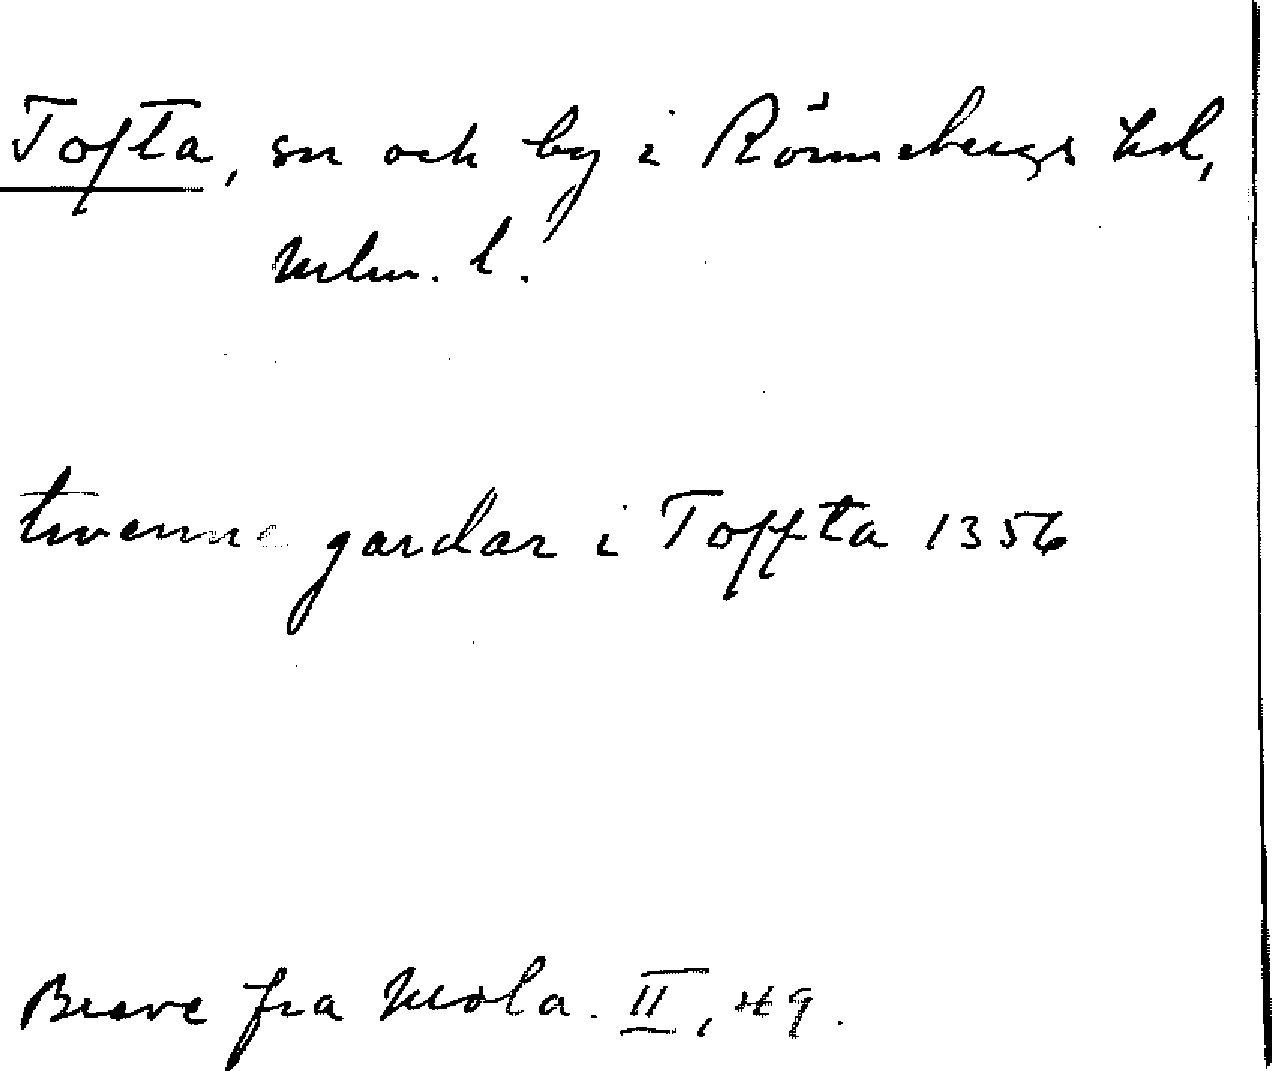 Tofta, sn och by i Rönnebergs hd,
Mlm. l.
twenne gardar i Toffta 1356
Breve fra Middela. II, 49.